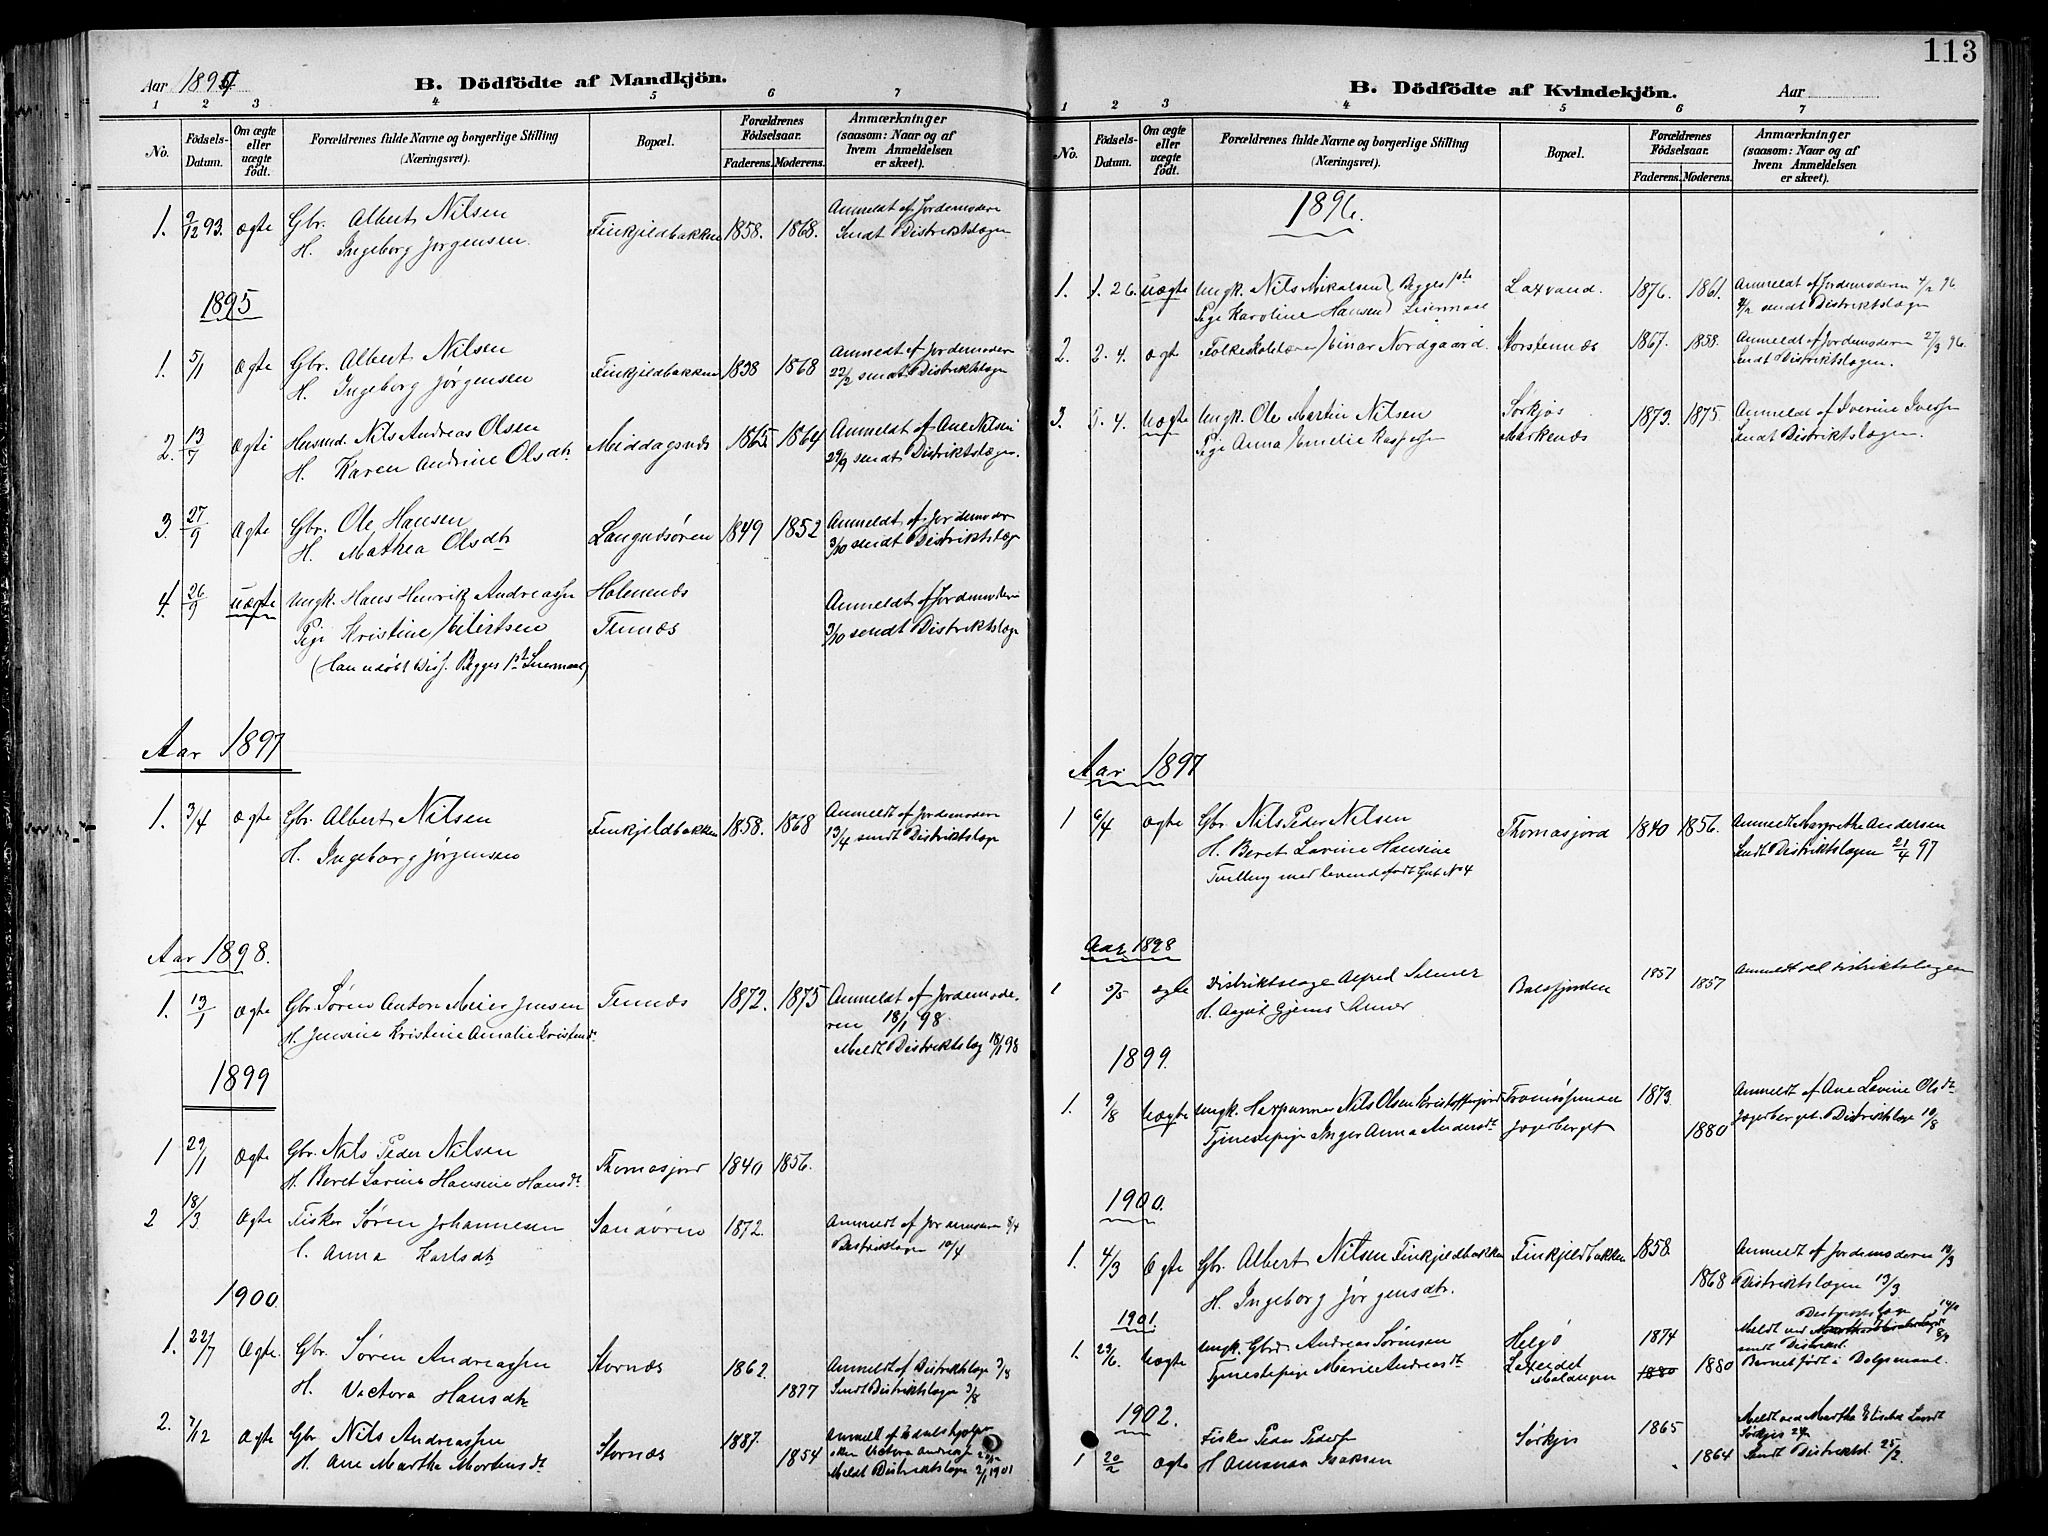 113
Aar 1894
B. Dödfödte af Mandkjön.
1 2 3 4 5 6 7
No.
Födsels-Datum.
Om ægte eller uægte födt.
Forældrenes fulde Navne og borgerlige Stilling (Næringsvei).
Bopæl.
Forældrenes Födselsaar.
Faderens. Moderens.
Anmærkninger (saasom: Naar og af hvem Anmeldelsen er skeet).
1. 9/12 93. ægte Gbr. Albert Nilsen Finkjeldbakken 1858. 1868. Anmeldt af Jordemoderen
H. Ingeborg Jørgensen. Sendt Distriktslægen
1895
1. 5/1 ægte Gbr. Albert Nilsen Finkjeldbakken 1838 1868 Anmeldt af Jordemodern
H. Ingeborg Jørgensen 22/2 sendt Distriktslægen
2. 13/7 ægte Husmd. Nils Andreas Olsen Middagsnæs 1865 1864 Anmeldt af Ane Nilsen
H. Karen Andrine Olsdtr 29/9 sendt Distriktslægen.
3. 27/9 ægte Gbr. Ole Hansen Langnæsøren 1849 1852 Anmeldt af Jordemodern
H. Mathea Olsdtr 3/10 sendt Distriktslæge
4. 26/9 uægte Ungk. Hans Henrik Andreassen Holmenæs Anmeldt af Jordemodern
Pige Kristine Eilertsen Tennæs 3/10 sendt Distriktslæge
(Han udøbt Diss. Begges 1ste Leiermaal)
Aar 1897
1. 3/4 ægte Gbr. Albert Nilsen Finkjeldbakken 1858. 1868 Anmeldt af Jordemodern
H. Ingeborg Jørgensen 13/4 sendt Distriktslæge
Aar 1898.
1. 13/1 ægte Gbr. Søren Anton Meier Jensen Tennæs 1872. 1875 Anmeldt af Jordemode-
H. Jensine Kristine Amalie Kristensdr ren 18/1 98
Meldt Distriktslæg 18/1 98
1899
1 29/1 ægte Gbr. Nils Peder Nilsen Thomasjord 1840 1856.
H. Beret Lavine Hansine Hansdt
2 18/3 ægte Fisker Søren Johannesen Sandøren 1872. Anmeldt af Jordemodern 8/4
Anna Karlsdtr Distriktslægen 10/4
1900
1. 22/7 ægte. Gbr. Søren Andreassen Stornæs 1862. Anmeldt af Distriktslæge 3/8
H. Victora Hansdtr 1877 Sendt Distriktslægen 3/8
2. 7/12 ægte Gbr. Nils Andreassen Stornæs 1887. Anmeldt af
H. Ane Martha Mortensdt 1854 Victora Andreass
Meldt Distriktslægen 2/1 1901
B. Dödfödte af Kvindekjön.
Aar
1 2 3 4 5 6 7
No.
Födsels-Datum.
Om ægte eller uægte födt.
Forældrenes fulde Navne og borgerlige Stilling (Næringsvei).
Bopæl.
Forældrenes Födselsaar.
Faderens. Moderens.
Anmærkninger (saasom: Naar og af hvem Anmeldelsen er skeet).
1896.
1. 1. 26. uægte Ungk. Nils Mikalsen Begges 1ste Laxvand. 1876. 1861. Anmeldt af Jordemoderen 4/2 96
Pige Karoline Hansen Leiermaal 4/2 sendt Distriktslægen
2. 2. 4. ægte Folkeskolelærer Einar Nordgaard. Storstennæs 1867. 1858. Anmeldt af Jordemodern 27/3 96.
Sendt Distriktslægen.
3. 5. 4. Uægte Ungk. Ole Martin Nilsen Sørkjos 1873. 1875. Anmeldt af Iverine Iversen
Pige Anna Emelie Kaspersen Markenæs Sendt Distriktslægen.
Aar 1897
1 6/4 ægte Gbr. Nils Peder Nilsen Thomasjord 1840 1856. Anmeldt Margrethe Andersen
H. Beret Lavine Hansine Sendt Distriktslægen 21/4 97
Tvilling med levendefødt Gut No 4
Aar 1898
1 5/5 ægte Distriktslæge Alfred Salmer Balsfjorden 1851 1857 Anmeldt ved Distriktslægen
H. Aagot Gjems
1899.
1. 9/8 Uægte Ungk. Nils Olsen Kristofferjord 1873. Anmeldt af Ane Lavine Olsdt
Tjenestepige Inger Anna Andersdt Jagerberget 1880 Jagerberget. Distriktslæge 10/8
1900.
1. 4/3 ægte Gbr. Albert Nilsen Finkjeldbakken Finkjeldbakken 1858. Anmeldt af Jordemoderen 10/3
H. Ingeborg Jørgensdtr. 1868 Distriktslægen 13/3
1901.
1. 23/6. Uægte Ungk. Gbrd Andreas Sørensen Helgø 1874 Meldt ved
Tjenestepige Marie Andreasdt Malangen 1880 1880 sendt Distriktsl.
Barnet født i Dolpemaal.
1902.
1 20/2 ægte Fisker Peder Peders Sørkjos 1865 Meldt ved Martha Elisabe
H. Amanda Isaksen 1864 Sørkjos
Sendt Distriktsl. 25/2.